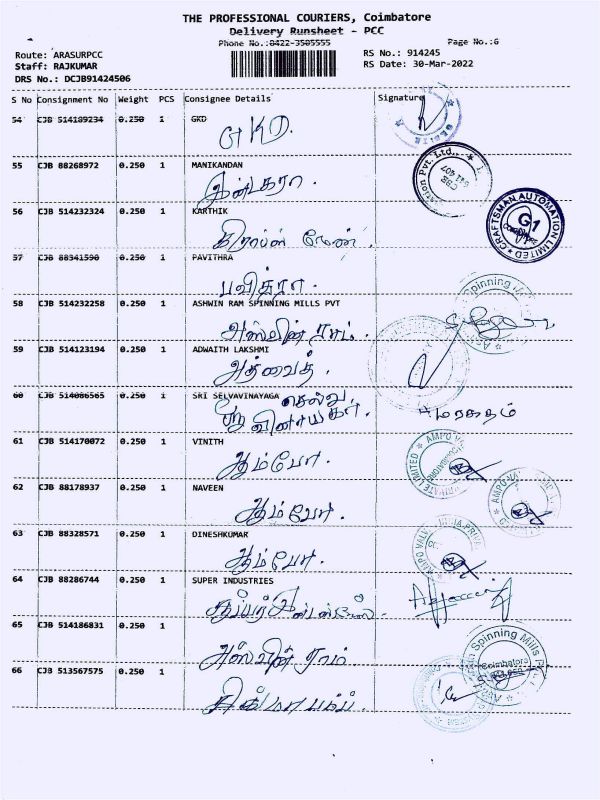 THE PROFESSIONAL COURIERS, Coimbatore
Delivery Runsheet - PCC
Phone No.:0422-3505555 Page No.:6
Route: ARASURPCC RS No.: 914245
Staff: RAJKUMAR RS Date: 30-Mar-2022
DRS No.: DCJB91424506
S No Consignment No Weight PCS Consignee Details Signature
54 CJB 514189234 0.250 1 GKD
GKD.
55 CJB 88268972 0.250 1 MANIKANDAN
56 CJB 514232324 0.250 1 KARTHIK
CRAFTSMAN AUTOMATION LIMITED
G1
57 CJB 88341590 0.250 1 PAVITHRA
பவித்ரா.
58 CJB 514232258 0.250 1 ASHWIN RAM SPINNING MILLS PVT
அஸ்வின் ராம்.
59 CJB 514123194 0.250 1 ADWAITH LAKSHMI
அத்வைத்.
60 CJB 514086565 0.250 1 SRI SELVAVINAYAGA செல்வ
விநாயகா. மரகதம்
61 CJB 514170072 0.250 1 VINITH
ஆம்போ.
62 CJB 88178937 0.250 1 NAVEEN
ஆம்போ.
63 CJB 88328571 0.250 1 DINESHKUMAR
ஆம்போ.
64 CJB 88286744 0.250 1 SUPER INDUSTRIES
65 CJB 514186831 0.250 1
அஸ்வின் ராம்
Spinning Mills
Coimbatore
66 CJB 513567575 0.250 1